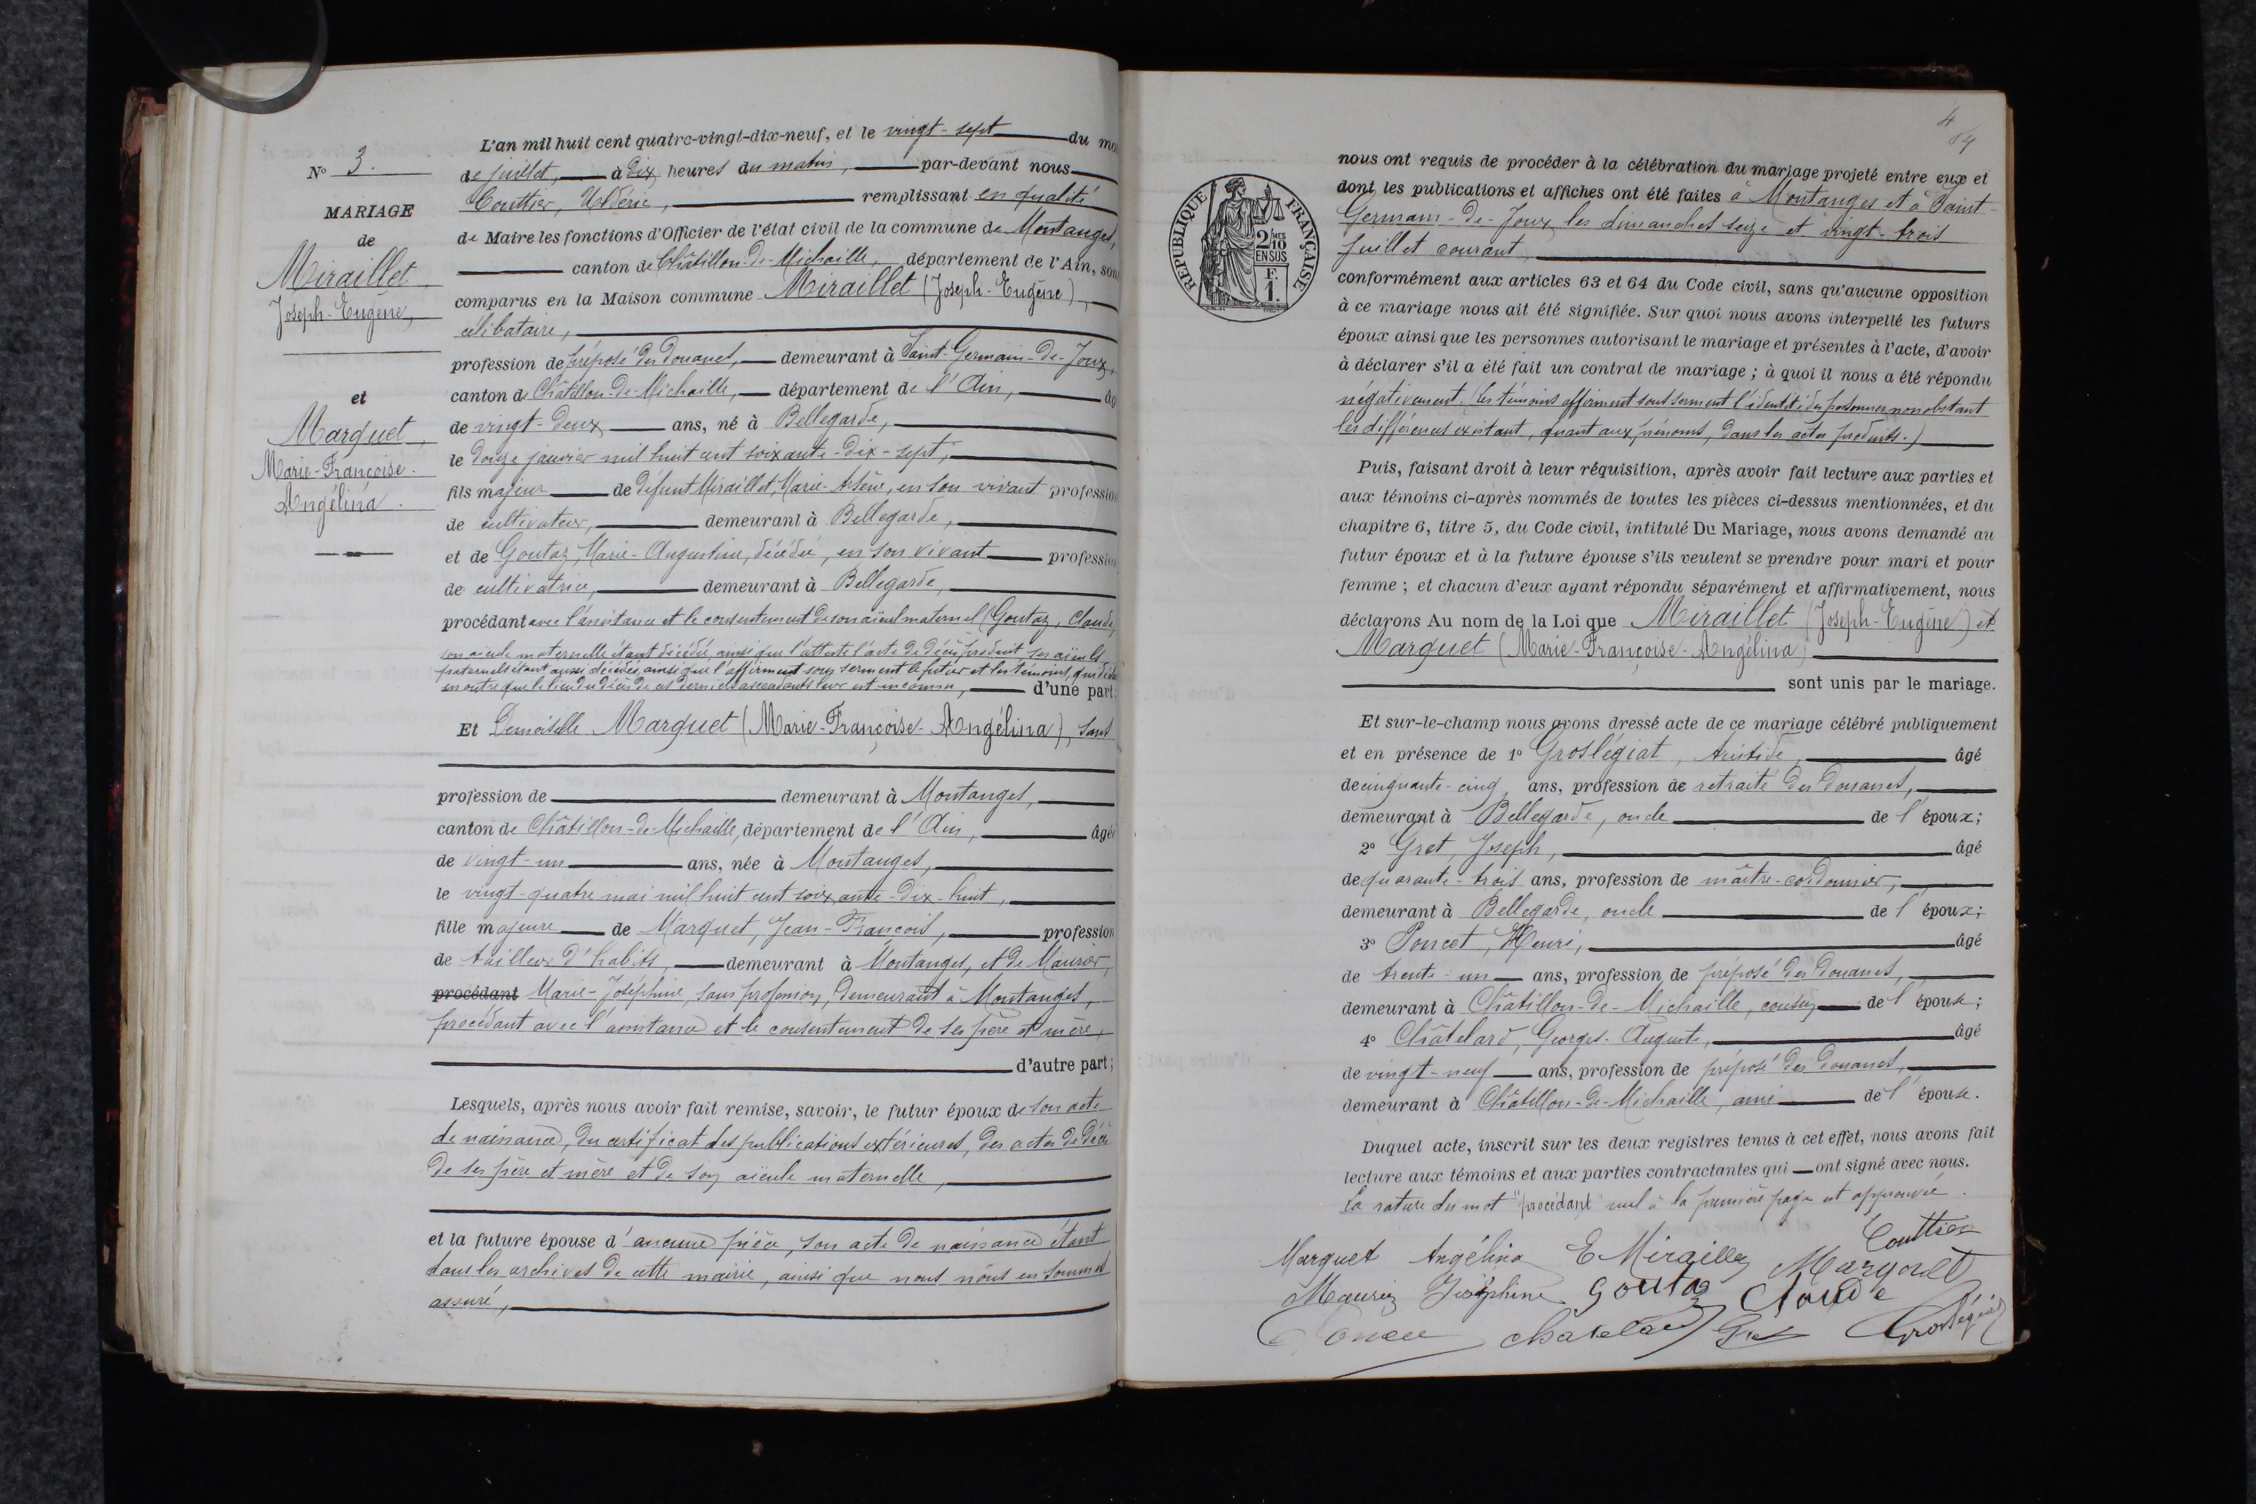 N° 3.
MARIAGE
de
Miraillet
Joseph-Eugène,
et
Marquet,
Marie-Françoise-
Angélina.
L'an mil huit cent quatre-vingt-dix-neuf, et le vingt-sept du mo
de juillet, à dix heures du matin, par-devant nous
Couttier, remplissant en qualité
de Maire les fonctions d'Officier de l'état civil de la commune de Montanges,
canton de Châtillon-de-Michaille, département de l'Ain, son
comparus en la Maison commune Miraillet (Joseph-Eugène),
célibataire,
profession de préposé des Douanes, demeurant à Saint-Germain-de-Joux,
canton de Châtillon-de-Michaille, département de l'Ain, âg
de vingt-deux ans, né à Bellegarde,
le douze janvier mil huit cent soixante-dix-sept,
fils majeur de défunt Miraillet, Marie-Arsène, en son vivant profession
de cultivateur, demeurant à Bellegarde,
et de Goutaz, Marie-Augustine, décédée, en son vivant profession
de cultivatrice, demeurant à Bellegarde,
procédant avec l'assistance et le consentement de son aïeul maternel (Goutaz, Claude,
son aïeule maternelle étant décédée, ainsi que l'atteste l'acte de décès produit ses aïeuls
paternels étant aussi décédés, ainsi que l'affirment sous serment le futur et les témoins, qui
en outre que le lieu du décès de ces derniers ascendants leur est inconnu, d'une part;
Et Demoiselle Marquet (Marie-Françoise-Angélina), sans
profession de demeurant à Montanges,
canton de Châtillon-de-Michaille, département de l'Ain, âgée
de vingt-un ans, née à Montanges,
le vingt-quatre mai mil huit cent soixante-dix-huit,
fille majeure de Marquet, Jean-François, profession
de tailleur d'habits, demeurant à Montanges, et de Maurier,
procédant Marie-Joséphine, sans profession, demeurant à Montanges,
procédant avec l'assistance et le consentement de ses père et mère,
d'autre part;
Lesquels, après nous avoir fait remise, savoir, le futur époux de son acte
de naissance, du certificat des publications extérieures, des actes de décès
de ses père et mère et de son aïeule maternelle,
et la future épouse d'aucune pièce, son acte de naissance étant
dans les archives de cette mairie, ainsi que nous nous en sommes
assuré,
4
84
RÉPUBLIQUE FRANÇAISE
2/10
EN SUS
F.
1.
nous ont requis de procéder à la célébration du mariage projeté entre eux et
dont les publications et affiches ont été faites à Montanges et à Saint-
Germain-de-Joux, les dimanches seize et vingt-trois
juillet courant,
conformément aux articles 63 et 64 du Code civil, sans qu'aucune opposition
à ce mariage nous ait été signifiée. Sur quoi nous avons interpellé les futurs
époux ainsi que les personnes autorisant le mariage et présentes à l'acte, d'avoir
à déclarer s'il a été fait un contrat de mariage; à quoi il nous a été répondu
négativement. (Les témoins affirment sous serment l'identité des personnes nonobstant
les différences existant, quant aux prénoms, dans les actes produits.)
Puis, faisant droit à leur réquisition, après avoir fait lecture aux parties et
aux témoins ci-après nommés de toutes les pièces ci-dessus mentionnées, et du
chapitre 6, titre 5, du Code civil, intitulé Du Mariage, nous avons demandé au
futur époux et à la future épouse s'ils veulent se prendre pour mari et pour
femme; et chacun d'eux ayant répondu séparément et affirmativement, nous
déclarons Au nom de la Loi que Miraillet (Joseph-Eugène) et
Marquet (Marie-Françoise-Angélina)
sont unis par le mariage.
Et sur-le-champ nous avons dressé acte de ce mariage célébré publiquement
et en présence de 1° Groslégiat, Aristide, âgé
de cinquante-cinq ans, profession de retraité des Douanes,
demeurant à Bellegarde, oncle de l'époux;
2° Gret, Joseph, âgé
de quarante-trois ans, profession de maître-cordonnier,
demeurant à Bellegarde, oncle de l'époux;
3° Poncet, Henri, âgé
de trente-un ans, profession de préposé des Douanes,
demeurant à Châtillon-de-Michaille, cousin de l'épouse;
4° Châtelard, Georges-Auguste, âgé
de vingt-neuf ans, profession de préposé des Douanes,
demeurant à Châtillon-de-Michaille, ami de l'épouse.
Duquel acte, inscrit sur les deux registres tenus à cet effet, nous avons fait
lecture aux témoins et aux parties contractantes qui ont signé avec nous.
La rature du mot "procédant" nul à la première page est approuvée.
Couttier
Marquet Angélina E Miraillet Marquet
Maurier Joséphine Goutaz Claude
Poncet Chatelard Gret Groslégiat